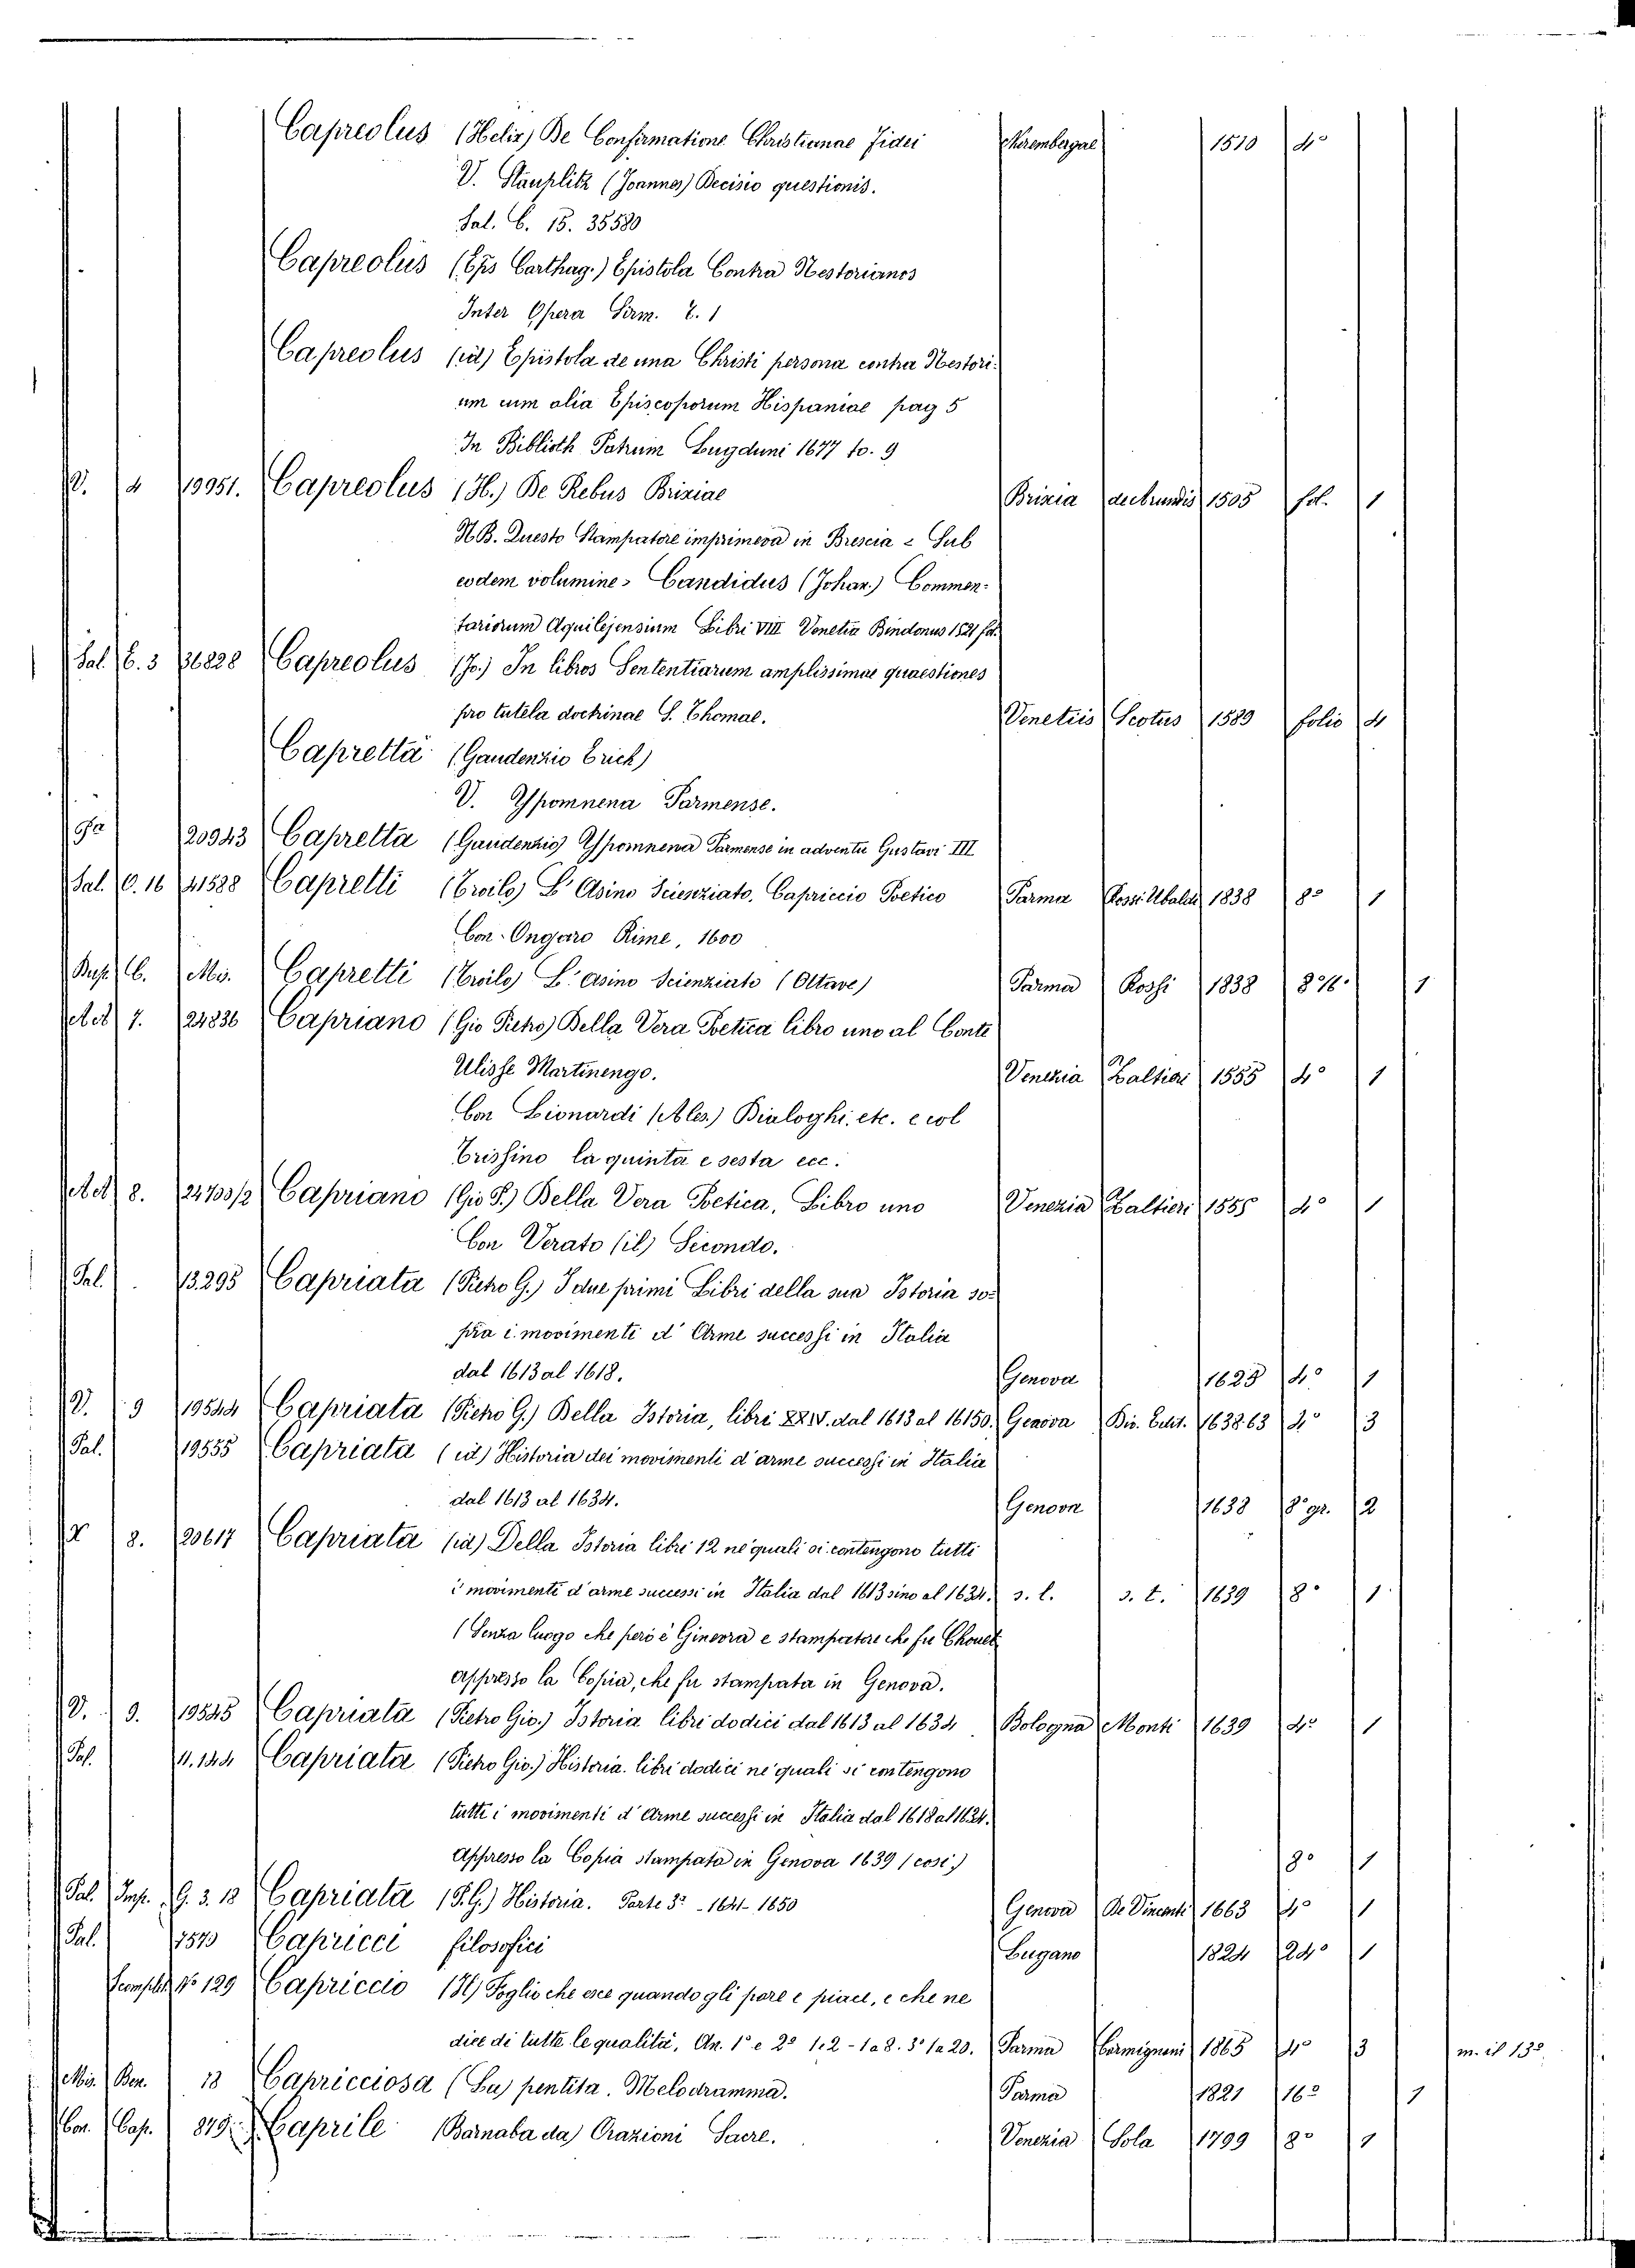 Capreolus (Helix) De Confirmatione Christianae Fidei Nurembergae 1510 4°
V. Stauplitz (Joannes) Decisio questionis.
Sal. C. 15. 35580
Capreolus (Eps Carthag.) Epistola Contra Nestorianos
Inter Opera Sirm. T. 1
Capreolus (id) Epistola de una Christi persona contra Nestori-
um cum alia Episcoporum Hispaniae pag 5
In Biblioth Patrum Lugduni 1677 to. 9
V. 4 19951. Capreolus (H.) De Rebus Brixiae Brixia 1505 fol. 1
N.B. Questo Stampatore imprimeva in Brescia = Sub
eodem volumine = Candidus (Johan.) Commen-
tariorum Aquilejensium Libri VIII Venetia Bindonus 1521 fol.
Sal. C. 3 36828 Capreolus (Jo.) In libros Sententiarum amplissimae quaestiones
pro tutela doctrinae S. Thomae. Venetiis Scotus 1589 folio 4
Capretta (Gaudenzio Erich)
V. Ypomnena Parmense.
20943 Capretta (Gaudenzio) Ypomnena Parmense in adventu Gustavi III
Sal. C. 16 41588 Capretti (Troilo) L'Asino Scienziato, Capriccio Poetico Parma Rossi Ubaldi 1838 8° 1
Con Ongaro Rime, 1600
C. Mis. Capretti (Troilo) L'Asino Scienziato (Ottave) Parma Rossi 1838 8° 1
7. 24836 Capriano (Gio Pietro) Della Vera Poetica libro uno al Conte
Ulisse Martinengo. Venezia Zaltieri 1555 4° 1
Con Lionardi (Ales.) Dialoghi. etc. e col
Trissino la quinta e sesta ecc.
8. 24700/2 Capriano (Gio P.) Della Vera Poetica, Libro uno Venezia Zaltieri 1555 4° 1
Con Verato (il) Secondo.
Pal. 13.295 Capriata (Pietro G.) I due primi Libri della sua Istoria so-
pra i movimenti d'Arme successi in Italia
dal 1613 al 1618. Genova 1625 4° 1
V. 9 19544 Capriata (Pietro G.) Della Istoria, libri XXIV. dal 1613 al 16150. Genova Div. Edit. 1638.63 4° 3
Pal. 19555 Capriata (id) Historia dei movimenti d'arme successi in Italia
dal 1613 al 1634. Genova 1638 8° gr. 2
X 8. 20617 Capriata (id) Della Istoria libri 12 ne' quali si contengono tutti
i movimenti d'arme successi in Italia dal 1613 sino al 1634. s. l. s. t. 1639 8° 1
(Senza luogo che però è Ginevra e stampatore che fu Chouet
Appresso la Copia, che fu stampata in Genova.
V. 9. 19545 Capriata (Pietro Gio.) Istoria libri dodici dal 1613 al 1634 Bologna Monti 1639 4° 1
Pal. 11.144 Capriata (Pietro Gio.) Historia. libri dodici ne' quali si contengono
tutti i movimenti d'Arme successi in Italia dal 1618 al 1634.
Appresso la Copia stampata in Genova 1639 (così) 8° 1
Pal. Imp. G. 3. 18 Capriata (P.G.) Historia. Parte 3ª - 1641-1650 Genova De Vincenti 1663 4° 1
Pal. 7573 Capricci filosofici Lugano 1824 24° 1
N° 129 Capriccio (Il) Foglio che esce quando gli pare e piace, e che ne
dice di tutte le qualità, An. 1° e 2° 1.2 - 1 a 8. 3° 1 a 20. Parma Carmignani 1865 4° 3 m. il 13°
Mis. Ben. 18 Capricciosa (La) pentita. Melodramma. Parma 1821 16° 1
Cap. 849. Caprile (Barnaba da) Orazioni Sacre. Venezia Sola 1799 8° 1